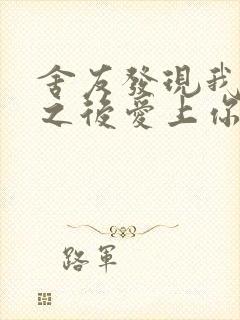 舍友發現我
之後愛上你
路軍